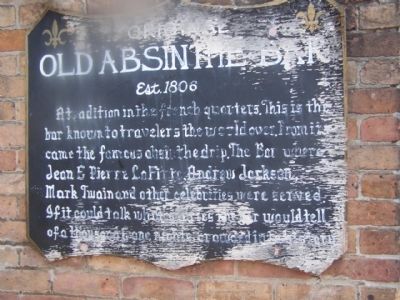 ORIGINAL
OLD ABSINTHE BAR
Est. 1806
A tradition in the french quarters. This is the
bar known to travelers the world over. From it
came the famous absinthe drip. The Bar where
Jean & Pierre LaFitte, Andrew Jackson,
Mark Twain and other celebrities were served.
If it could talk what stories this bar would tell
of a thousand & one nights crowded into